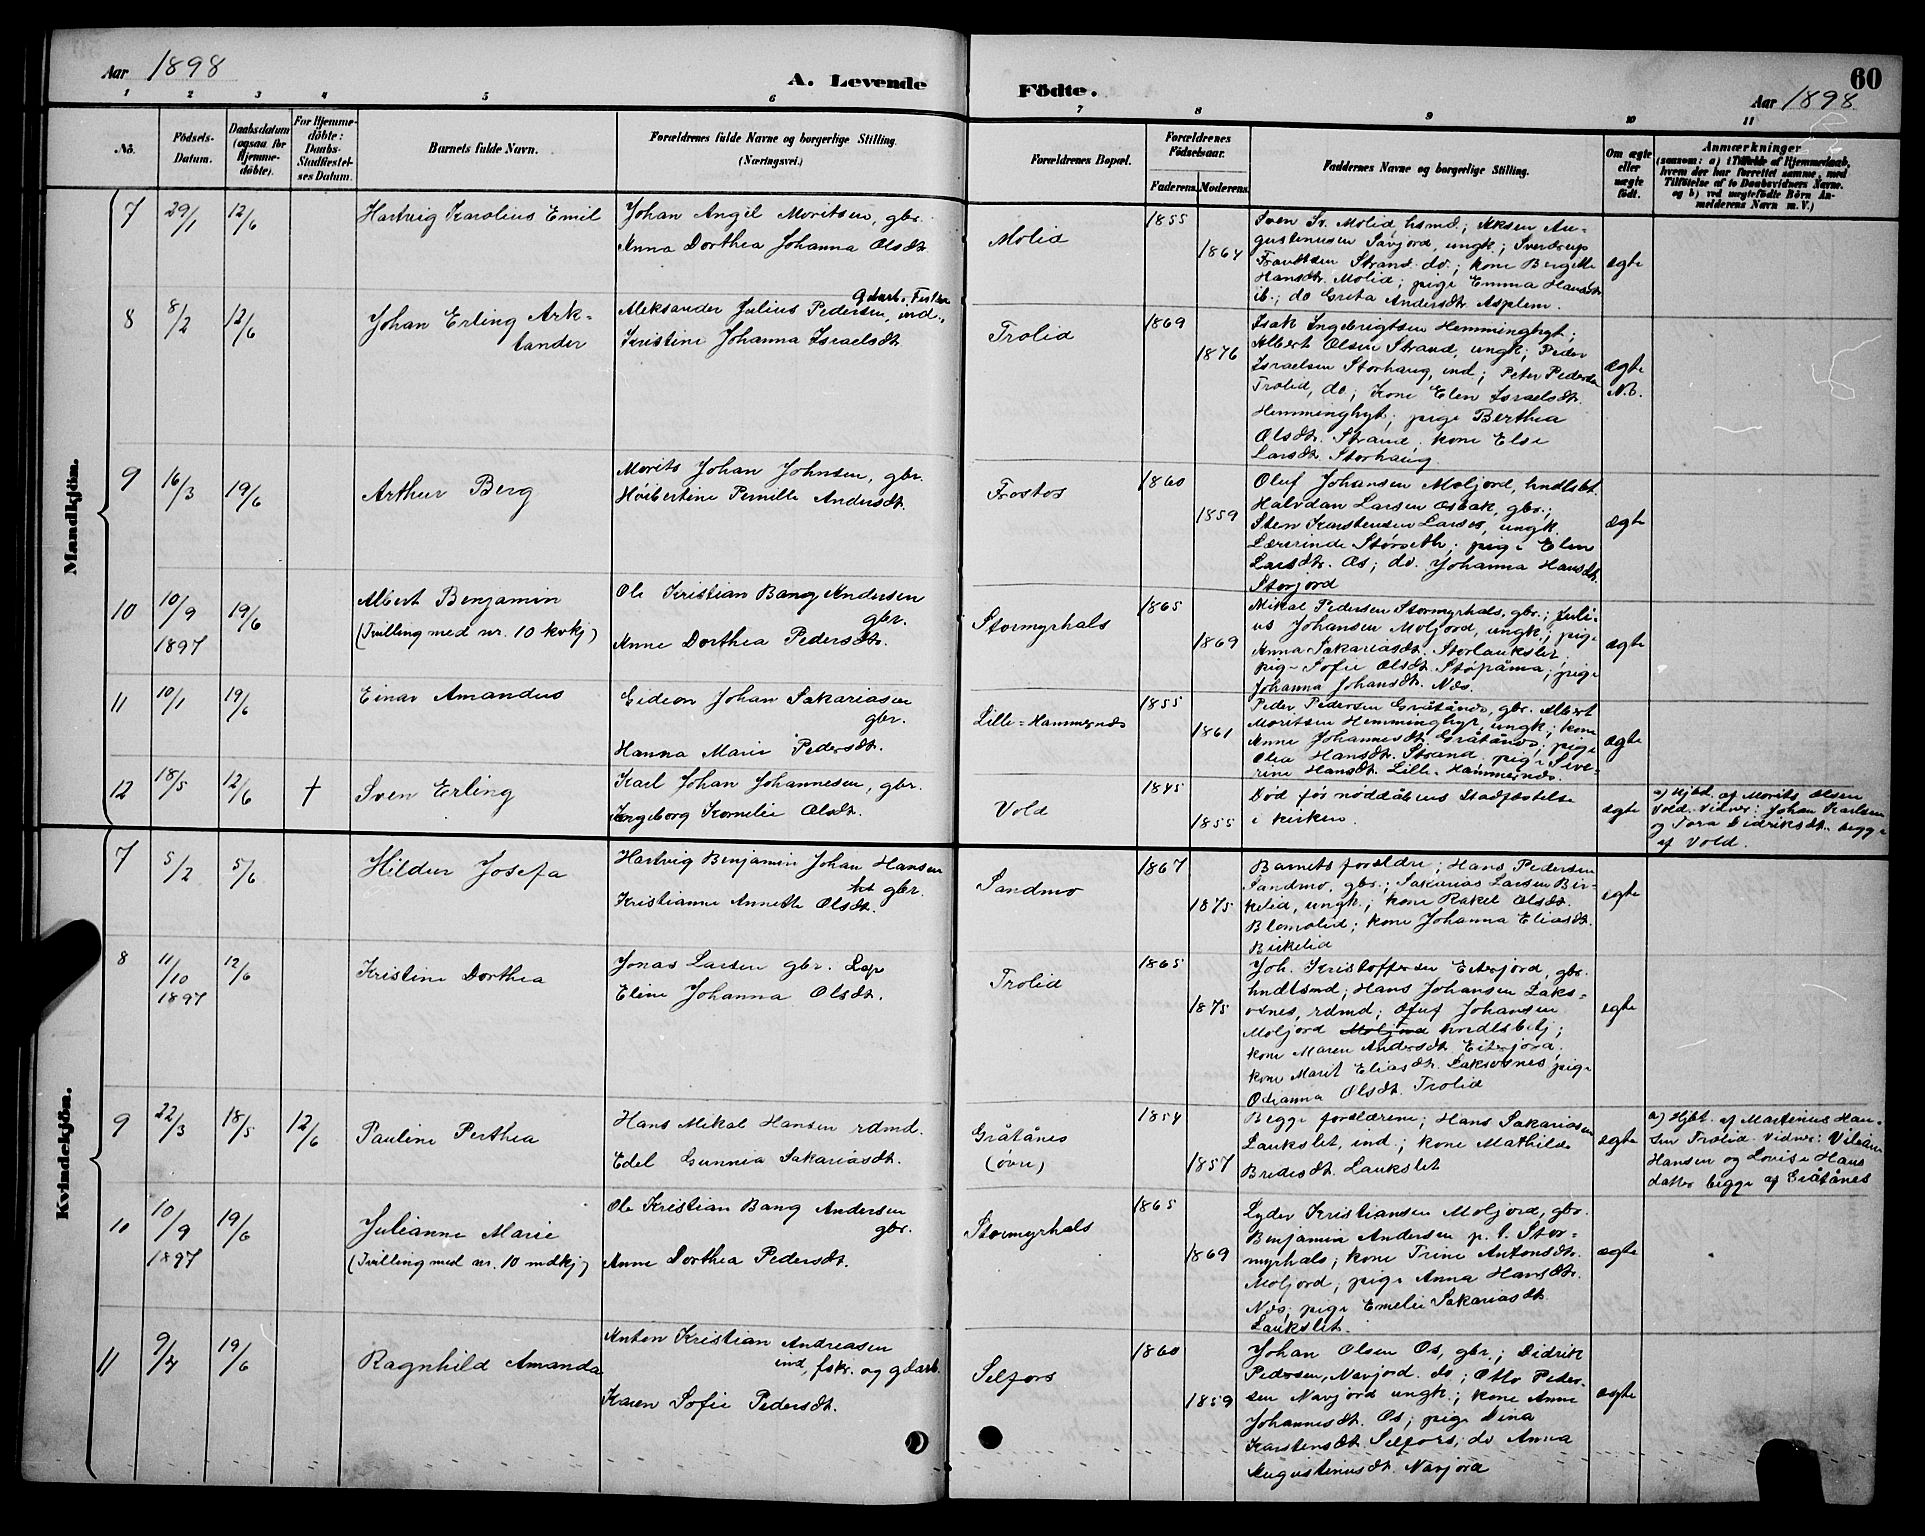 Aar 1898
A. Levende
Födte.
60
Aar 1898
1 2 3 4 5 6 7 8 9 10 11
No.
Födsels-
Datum.
Daabsdatum
(ogsaa for
Hjemme-
döbte).
For Hjemme-
döbte:
Daabs-
Stadfæstel-
ses Datum.
Barnets fulde Navn.
Forældrenes fulde Navne og borgerlige Stilling.
(Næringsvei.)
Forældrenes Bopæl.
Forældrenes
Födselsaar.
Faderens. Moderens.
Faddernes Navne og borgerlige Stilling.
Om ægte
eller
uægte
født.
Anmærkninger
(saasom: a) i Tilfælde af Hjemmedaab,
hvem der har forrettet samme, med
Tilföielse af to Daabsvidners Navne.
og b) ved uægtefödte Börn An-
melderens Navn m. V.)
Mandkjön.
7 29/1 12/6 Hartvig Karolius Emil
Johan Angel Moritsen, gbr.
Anna Dorthea Johanna Olsdt.
Molid
1855
1864
Sven Sv. Molid, hsmd; Aksen Au-
gustinusen Savjord, ungk; Sverdrup
Frantsen Strand do; kone Bergitte
Hansdt. Molid; pige Emma Hansdt
ib.; do Greta Andersdt. Asplem.
ægte
8 8/2 12/6 Johan Erling Ark-
tander
Aleksander Julius Pedersen, ind.,
Kristine Johanna Israelsdt.
Trolid
1869
1876
Isak Ingebrigtsen Hemminghyt;
Albert Olsen Strand, ungk; Peder
Israelsen Storhaug, ind; Peter Pedersen
Trolid, do; Kone Elen Israelsdt.
Hemminghyt; pige Berthea
Olsdt. Strand. kone Else
Larsdt. Storhaug
ægte
N.B.
9 16/3 19/6 Arthur Berg
Morits Johan Johnsen, gbr.
Hörbertine Pernille Andersdt.
Frostos
1860
1859
Oluf Johansen Moljord, hndlsbt.
Halvdan Larsen Osbak, gbr.;
Sten Karstensen Larsos, ungk.
Lærerinde Störseth; pige Elen
Larsdt. Os; do. Johanna Hansdt.
Storjord
ægte
10 10/9 1897 19/6 Albert Benjamin
(Tvilling med nr. 10 kvkj)
Ole Kristian Bang Andersen
gbr.
Anne Dorthea Pedersdt.
Stormyrhals
1865
1869
Mikal Pedersen Stormyrhals, gbr.; Juli-
us Johansen Moljord, ungk; pige
Anna Sakariasdt. Storlaukslet;
pige Sofie Olsdt. Stöpåma; pige
Johanna Johansdt. Næs.
ægte
11 10/1 19/6 Einar Amandus
Gideon Johan Sakariasen
gbr.
Hanna Marie Pedersdt.
Lille-Hammernæs
1855
1861
Peder Pedersen Gråtånes, gbr. Albert
Moritsen Hemminghyt, ungk; kone
Anne Johannesdt Gråtånes; pige
Olea Hansdt. Strand; pige Seve-
rine Hansdt. Lille-Hammernæs.
ægte
12 18/5 12/6 † Sven Erling
Karl Johan Johannesen, gbr.
Ingeborg Kornelie Olsdt.
Vold
1845
1855
Död før nöddåbens Stadfæstelse
i kirken.
ægte
a) Hjbt. af Morits Olsen
Vold. Vidner: Johan Karlsen
og Tora Didriksdt. begge
af Vold.
Kvindekjön.
7 5/2 5/6 Hildur Josefa
Hartvig Benjamin Johan Hansen
gbr.
Kristianne Annette Olsdt.
Sandmo
1867
1875
Barnets forældre; Hans Pedersen
Sandmo, gbr.; Sakarias Larsen Bir-
kelid, ungk.; kone Rakel Olsdt.
Blomolid; kone Johanna Eliasdt.
Birkelid
ægte
8 11/10 1897 12/6 Kristine Dorthea
Jonas Larsen gbr. Lap
Eline Johanna Olsdt.
Trolid
1865
1875
Joh. Kristoffersen Eiterjord, gbr.
hndlsmd; Hans Johansen Laks-
osnes, rdmd; Oluf Johansen
Moljord Moljord hndlsbetj;
kone Maren Andersdt. Eiterjord;
kone Marit Eliasdt. Laksosnes pige
Odianna Olsdt. Trolid
ægte
9 22/3 18/5 12/6 Pauline Perthea
Hans Mikal Hansen rdmd.
Edel Gunnia Sakariasdt.
Gråtånes
(övre)
1854
1857
Begge forældrene; Hans Sakariasen
Laukslet, ind.; kone Mathilde
Bredesdt. Laukslet
ægte
a) Hjbt. af Martenius Han-
sen Trolid. Vidner: Vilian
Hansen og Lovise Hans
datter begge af Gråtånes
10 10/9 1897 19/6 Julianne Marie
(Tvilling med nr. 10 mdkj)
Ole Kristian Bang Andersen
gbr.
Anne Dorthea Pedersdt.
Stormyrhals
1865
1869
Lyder Kristiansen Moljord, gbr.
Benjamin Andersen p. t. Stor-
myrhals; kone Trine Antonsdt.
Moljord; pige Anna Hansdt.
Næs; pige Emelie Sakariasdt.
Laukslet.
ægte
11 9/4 19/6 Ragnhild Amanda
Anton Kristian Andreasen
ind, fskr. og gdarb.
Karen Sofie Pedersdt.
Selfors
1860
1859
Johan Olsen Os, gbr.; Didrik
Pedersen, Navjord. do; Otto Peder-
sen Navjord ungk.; kone Anne
Johannesdt. Os; pige Dina
Karstensdt. Selfors; do Anna
Augustinusdt. Navjord
ægte